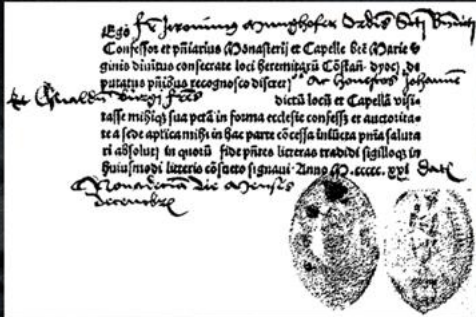 Ego fr Jeronimus Munghofer Ordis Scti
Confessor et pñiarius Monasterij et Capelle bte Marie v
ginis diuitus consecrate loci heremitarũ Cõstañ. dyoc; de
putatus pñibus recognosco discret ac honestos Johanne
Et frēs dictũ locũ et Capellã visi
tasse mihiq; sua pctã in forma ecclesie confessi et auctorita
te a sede aplica mihi in hac parte cõcessa iniũcta pñia saluta
ri absoluti in quorũ fide pñtes litteras tradidi sigilloq; in
huiusmodi litteris cõsueto signaui Anno M.ccccc.xxj. Dat
die Mensis
decembris